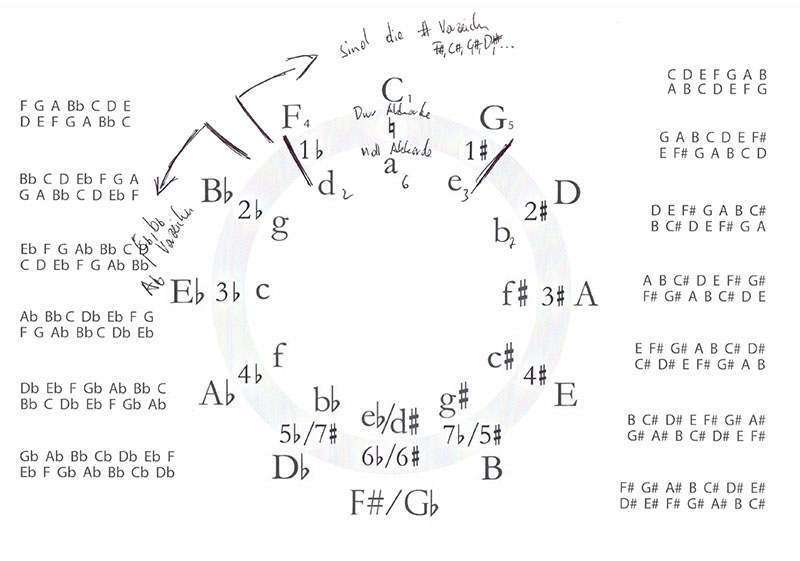 sind die # Vorzeichen
F#, C#, G#, D#, ...
F G A Bb C D E
D E F G A Bb C
Bb C D Eb F G A
G A Bb C D Eb F
Eb F G Ab Bb C D
C D Eb F G Ab Bb
Ab Bb C Db Eb F G
F G Ab Bb C Db Eb
Db Eb F Gb Ab Bb C
Bb C Db Eb F Gb Ab
Gb Ab Bb Cb Db Eb F
Eb F Gb Ab Bb Cb Db
C 1
Dur Akkorde
♮
Moll Akkorde
a 6
F 4
1♭
d 2
G 5
1#
e 3
B♭
2♭
g
D
2#
b 7
E♭ 3♭ c
f# 3# A
f
4♭
A♭
c#
4#
E
b♭
5♭/7#
D♭
e♭/d#
6♭/6#
F#/G♭
g#
7♭/5#
B
Vorzeichen
C D E F G A B
A B C D E F G
G A B C D E F#
E F# G A B C D
D E F# G A B C#
B C# D E F# G A
A B C# D E F# G#
F# G# A B C# D E
E F# G# A B C# D#
C# D# E F# G# A B
B C# D# E F# G# A#
G# A# B C# D# E F#
F# G# A# B C# D# E#
D# E# F# G# A# B C#